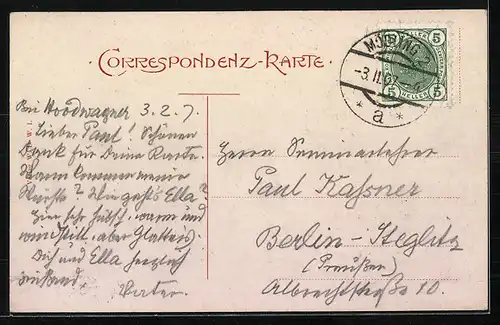 CORRESPONDENZ-KARTE
5 5
MÖDLING 2
-3.II.07
5 HELLER 5
* a *
Bei 3.2.7.
Lieber Paul! Schönen
Dank für Deine Karte.
Wann kommen meine
? Wie geht's Ella?
Hier sehr hübsch, warm und
windstill, aber Glatteis.
Dich und Ella herzlich
grüßend,
Vater.
Herrn Seminarlehrer
Paul Kassner
Berlin-Steglitz
(Preußen)
Albrechtstraße 10.